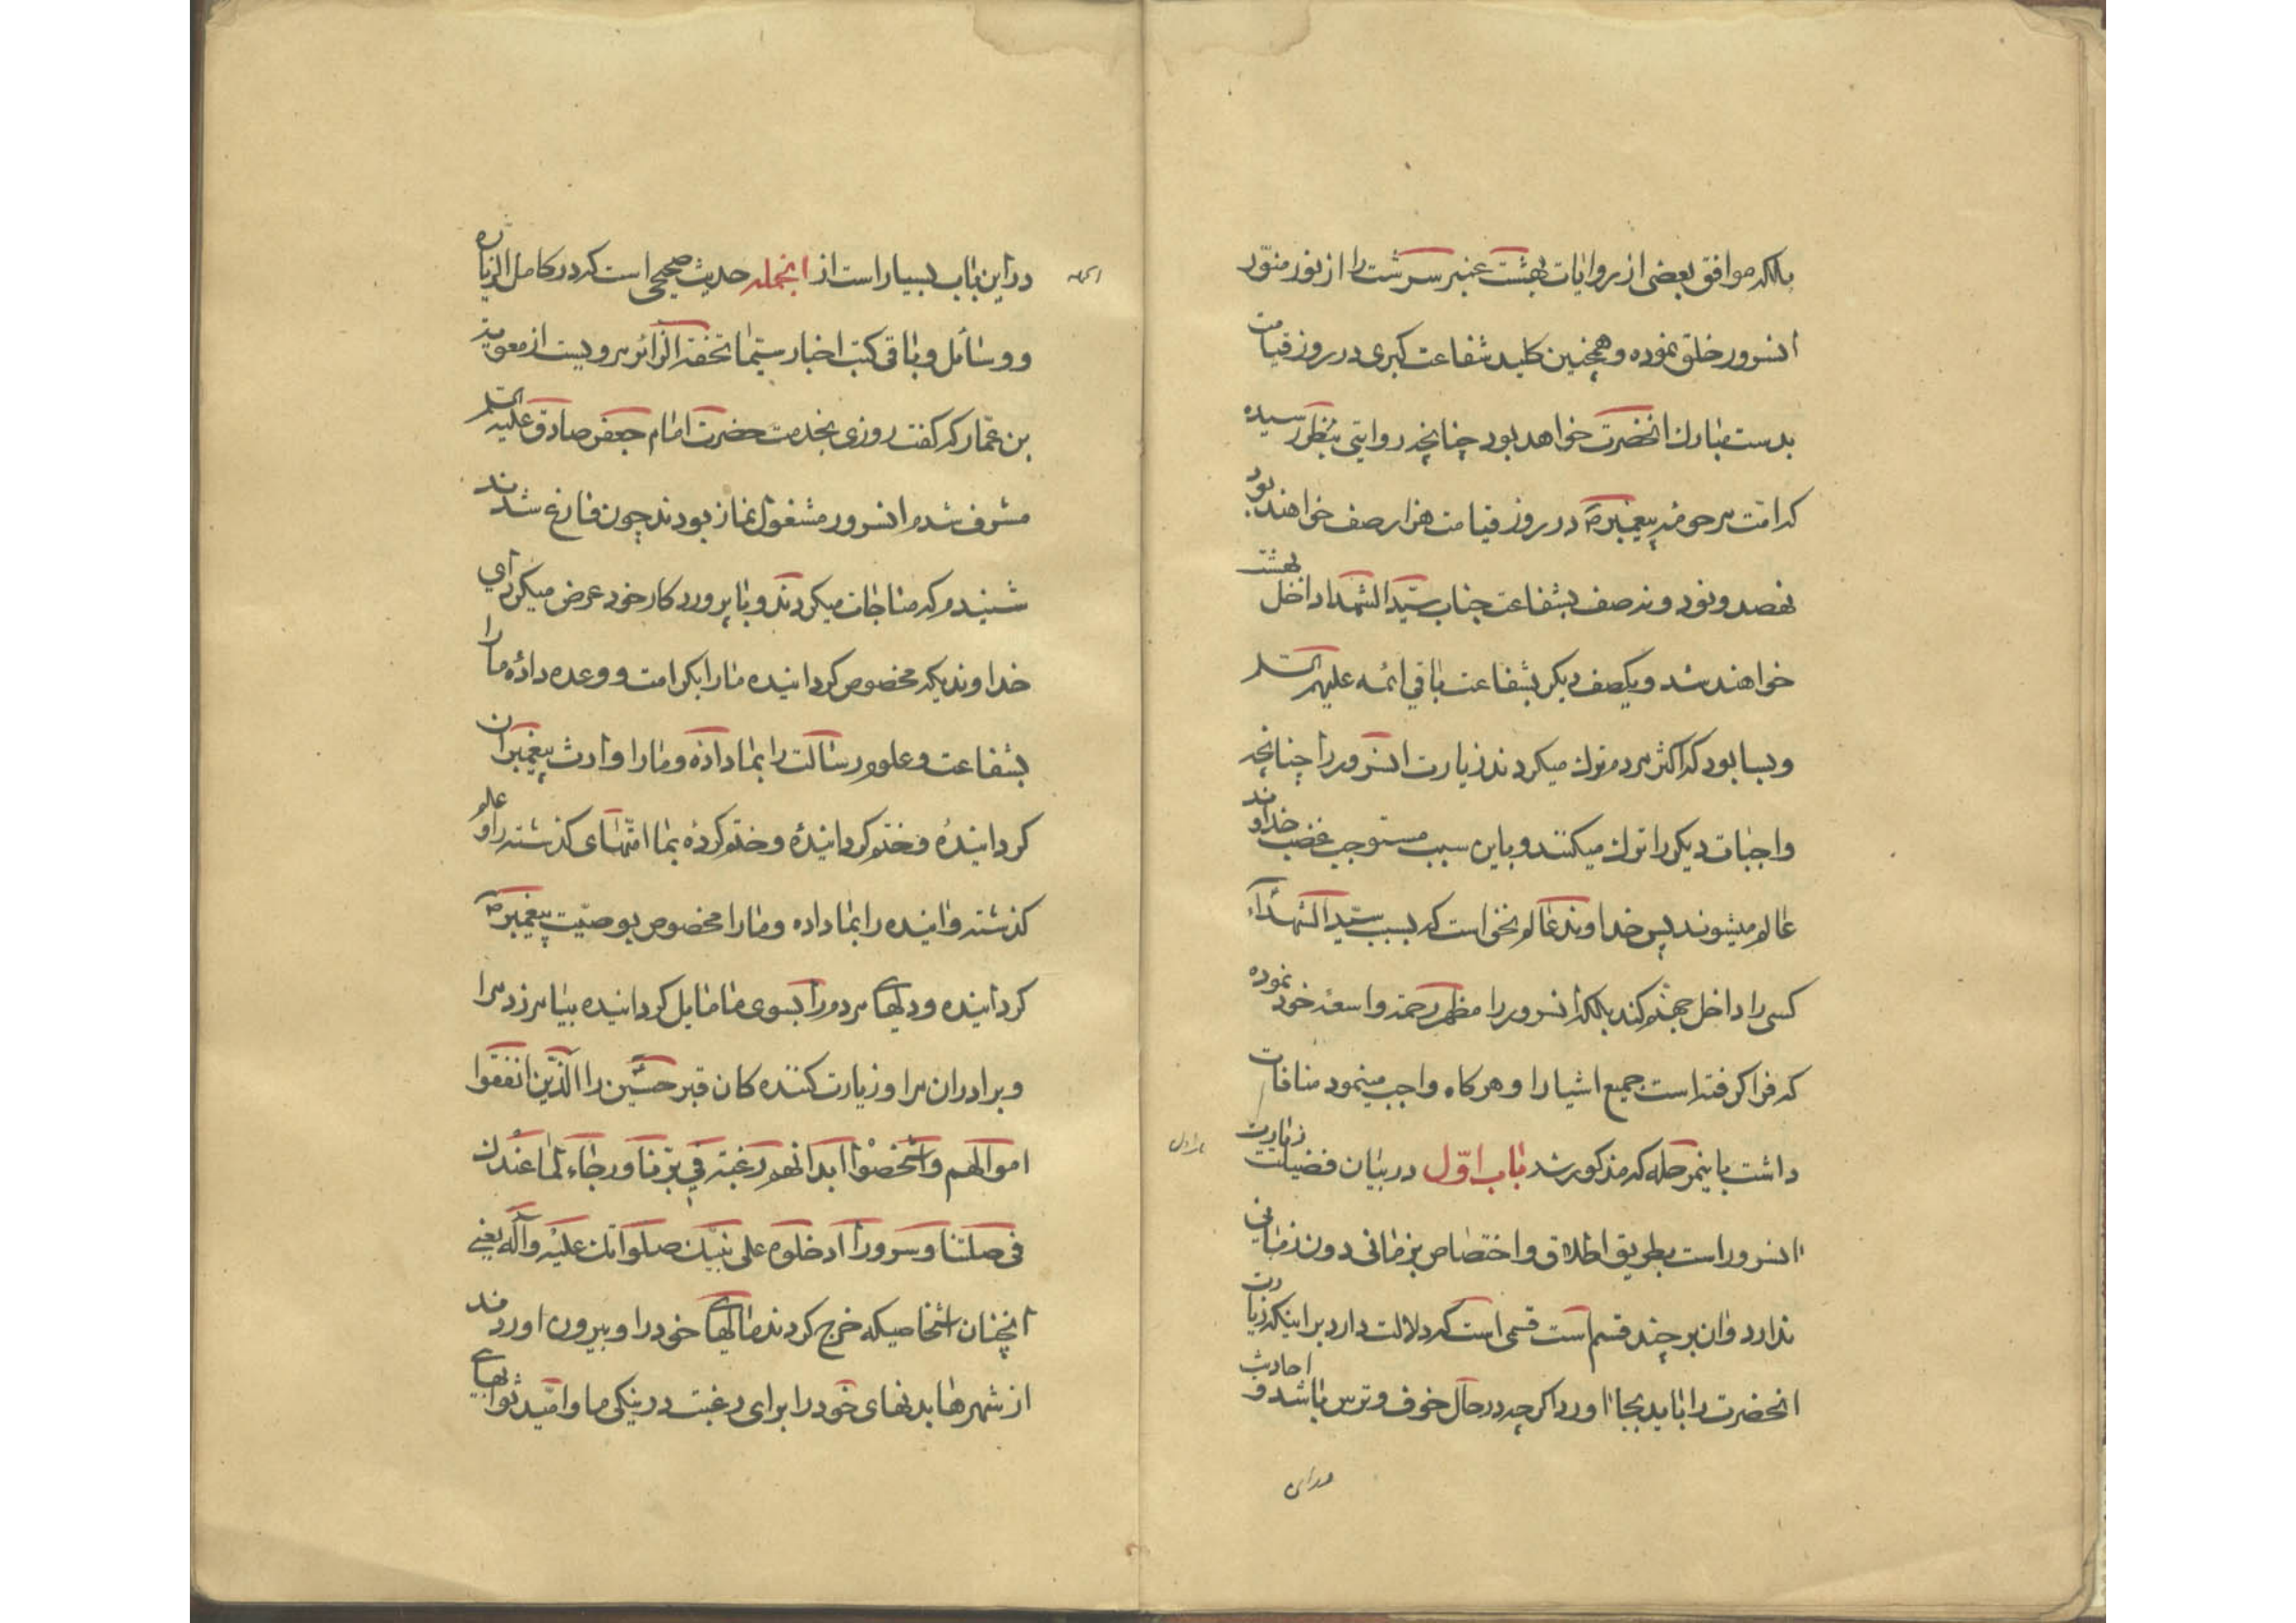 بلکه موافق بعضی از روایات بهشت عنبر سرشت را از نور منوّر
انسرور خلق نموده و همچنین کلید شفاعت کبری در روز قیامت
بدست مبارك انحضرت خواهد بود چنانچه روایتی بنظر رسیده
که امّت مرحومهٔ پیغمبر ص در روز قیامت هزار صف خواهند بود
نهصد و نود و نه صف بشفاعت جناب سیّد الشهدا داخل بهشت
خواهند شد و یکصف دیگر بشفاعت باقی ائمه علیهم السلم
و بسا بود که اکثر مردم ترك میکردند زیارت انسرور را چنانچه
واجبات دیگر را ترك میکنند و باین سبب مستوجب غضب خداوند
عالم میشوند پس خداوند عالم نخواست که بسبب سیّد الشهداء
کسی را داخل جهنّم کند بلکه انسرور را مظهر رحمة واسعهٔ خود نموده
که فرا گرفته است جمیع اشیا را و هرگاه واجب مینمود منافات
داشت با ینمرحله که مذکور شد باب اوّل در بیان فضیلت زیارت
انسرور است بطریق اطلاق و اختصاص بزمانی دون زمانی
ندارد و ان بر چند قسم است قسمی است که دلالت دارد بر اینکه زیارت
انحضرت را باید بجا اورد اگر چه در حال خوف و ترس باشد و احادیث
در این
در این باب بسیار است از انجمله حدیث صحیحی است که در کامل الزیاره
و وسائل و باقی کتب اخبار سیّما تحفة الزائر مرویست از معویة
بن عمّار که گفت روزی بخدمت حضرت امام جعفر صادق علیه السلم
مشرف شدم انسرور مشغول نماز بودند چون فارغ شدند
شنیدم که مناجات میکردند و با پروردکار خود عرض میکرد ای
خداوندیکه مخصوص کردانیده مارا بکرامت و وعده دادهٔ ما را
بشفاعت و علوم رسالت را بما داده و مارا وارث پیغمبران
کردانیدهٔ و ختم کردانیدهٔ و ختم کردهٔ بما امّتهای کذشته را و علم
کذشته و اینده را بما داده و مارا مخصوص بوصیّت پیغمبر ص
کردانیده و دلهای مردم را بسوی ما مایل کردانیده بیامرزد مرا
و برادران مرا و زیارت کننده کان قبر حسین را الّذین انفقوا
اموالهم و اشخصوا ابدانهم رغبة فی برّنا و رجاء لما عندك
فی صلتنا و سرورا ادخلوه علی نبیّك صلواتك علیه و آله یعنی
انچنان اشخاصیکه خرج کردند مالهای خود را و بیرون اوردند
از شهرها بدنهای خود را برای رغبت در نیکی ما و امّید ثوابهای